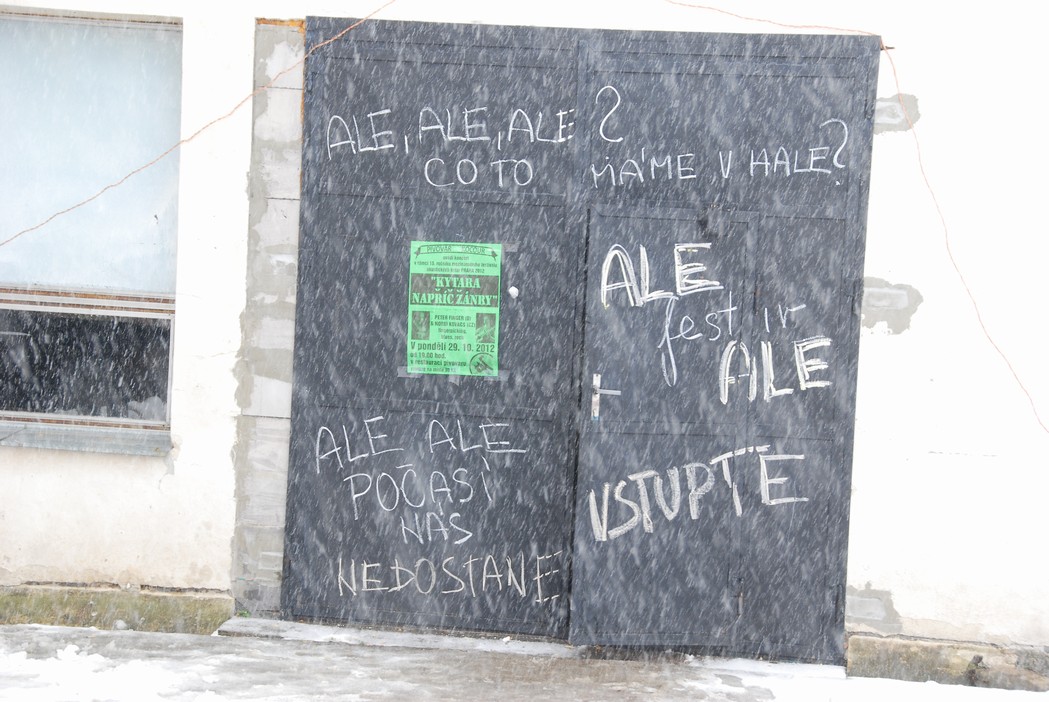 ALE, ALE, ALE ?
CO TO MÁME V HALE?
"KYTARA
NAPŘÍČ ŽÁNRY"
V pondělí 29. 10. 2012
od 19.00 hod.
ALE
fest ir
ALE
VSTUPTE
ALE ALE
POČASÍ
NÁS
NEDOSTANE